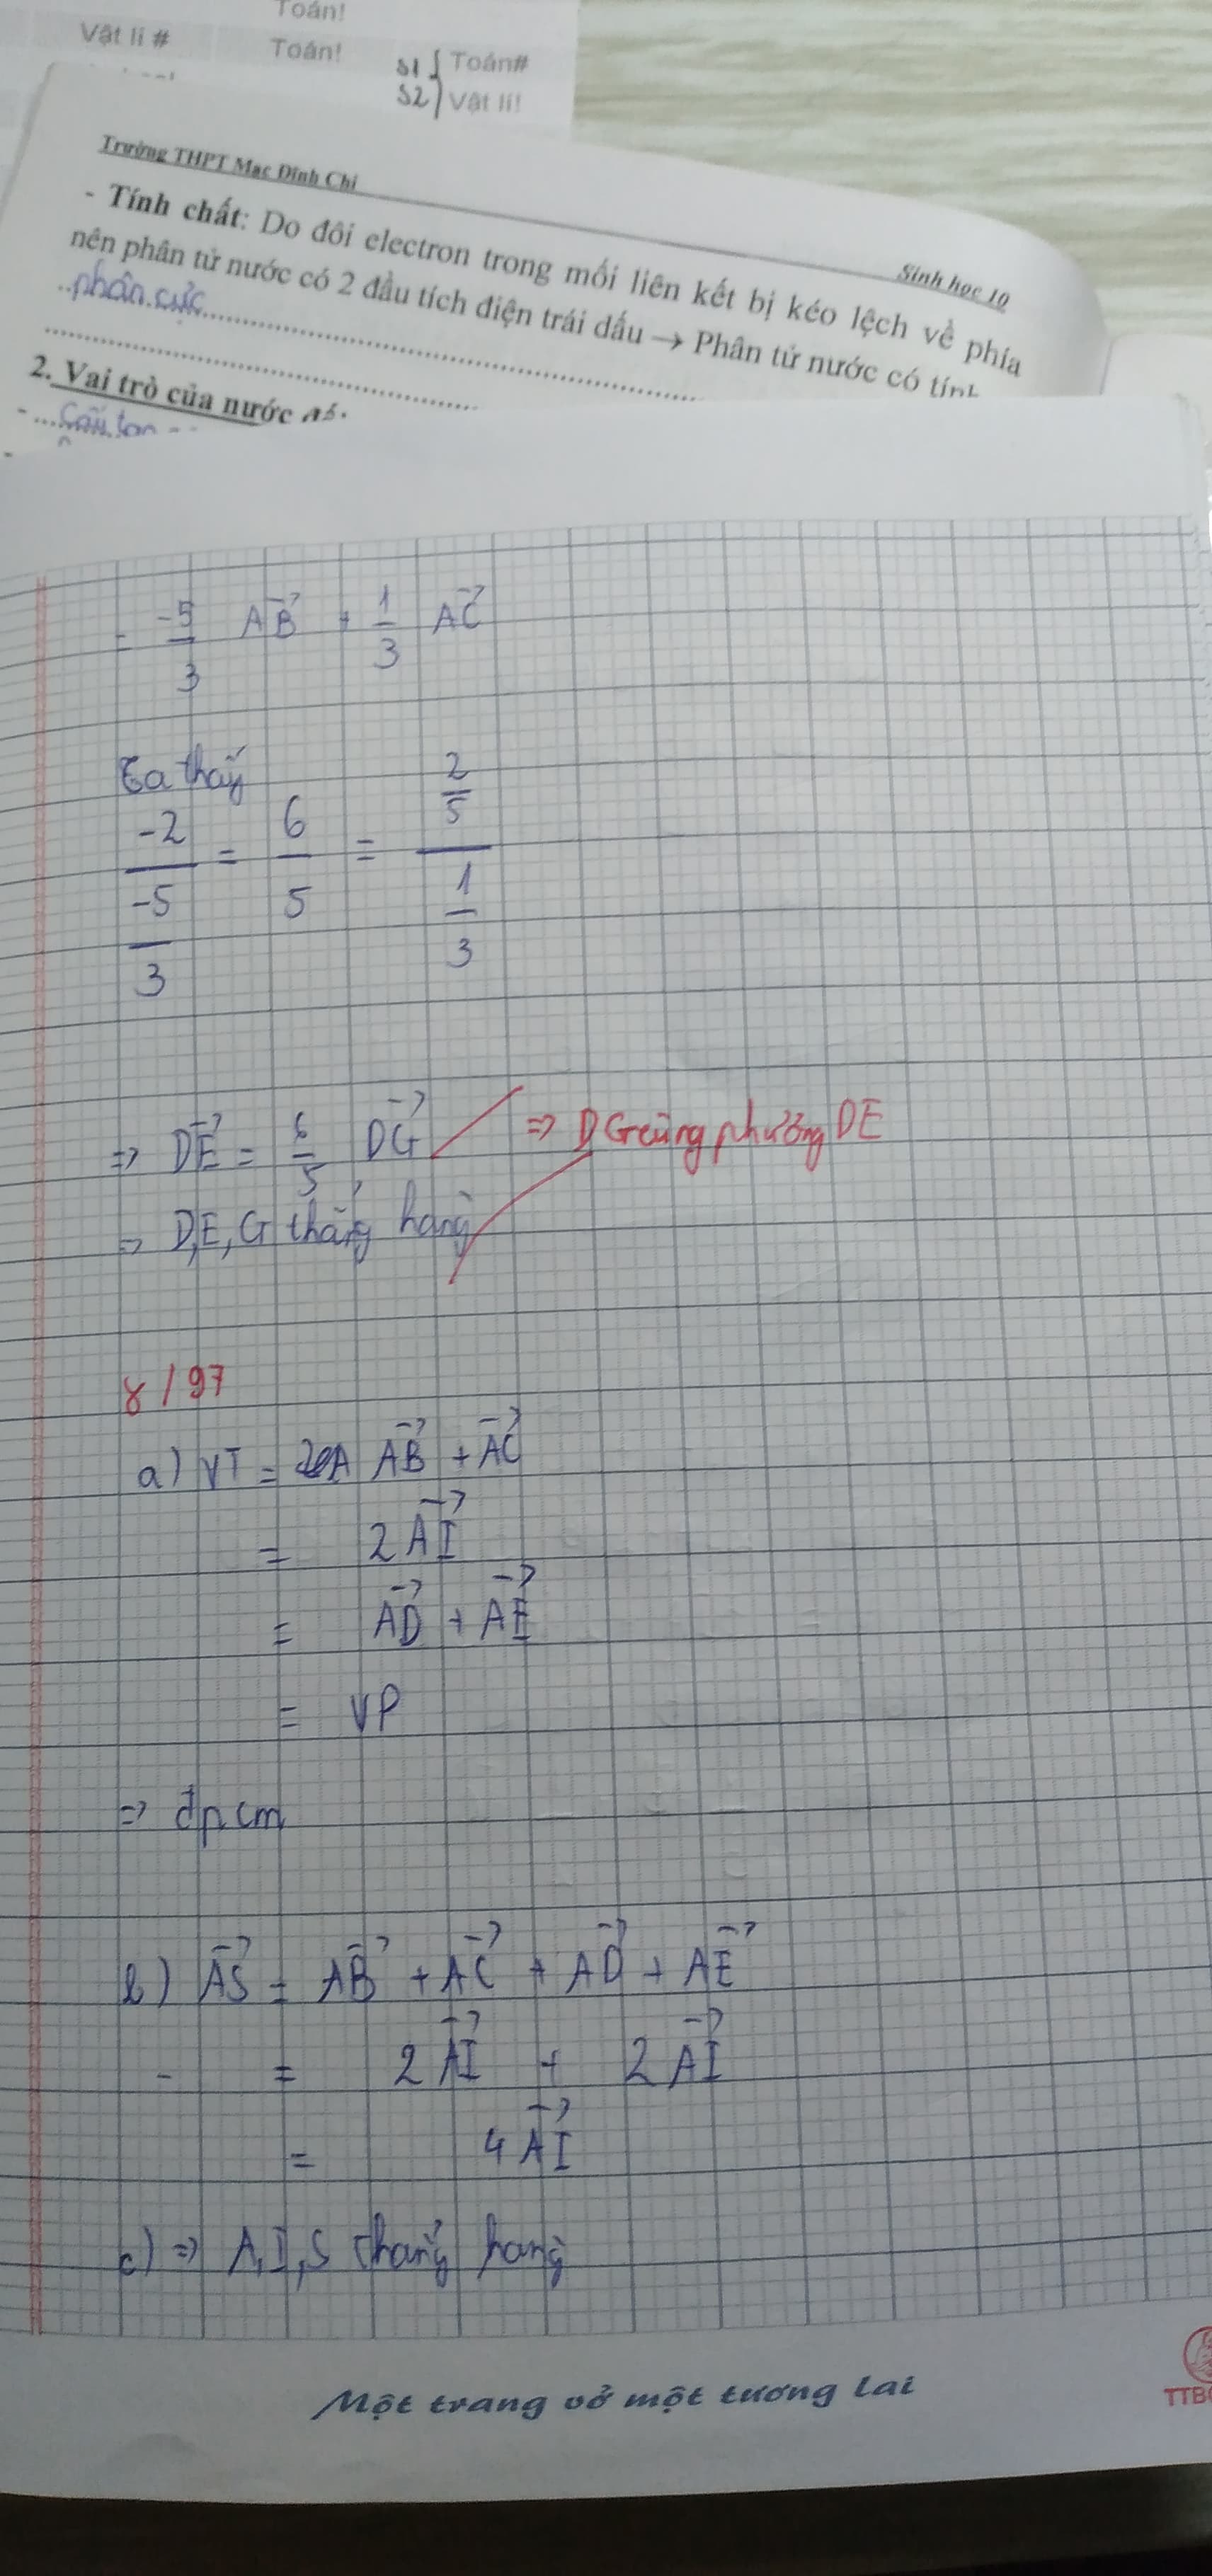 Toán!
Vật lí # Toán! S1 Toán#
S2 Vật lí!
Trường THPT Mạc Đĩnh Chi
Sinh học 10
- Tính chất: Do đôi electron trong mối liên kết bị kéo lệch về phía
nên phân tử nước có 2 đầu tích điện trái dấu → Phân tử nước có tính
phân cực
2. Vai trò của nước
- Cấu tạo
= -5/3 AB→ + 1/3 AC→
Ta thấy
-2/(-5/3) = 6/5 = (2/5)/(1/3)
=> DE→ = 6/5 DG→ => DG cùng phương DE
=> D,E,G thẳng hàng
8/97
a) VT = AB→ + AC→
= 2AI→
= AD→ + AE→
= VP
=> đpcm
b) AS→ = AB→ + AC→ + AD→ + AE→
= 2AI→ + 2AI→
= 4AI→
c) => A,I,S thẳng hàng
Một trang vở một tương lai